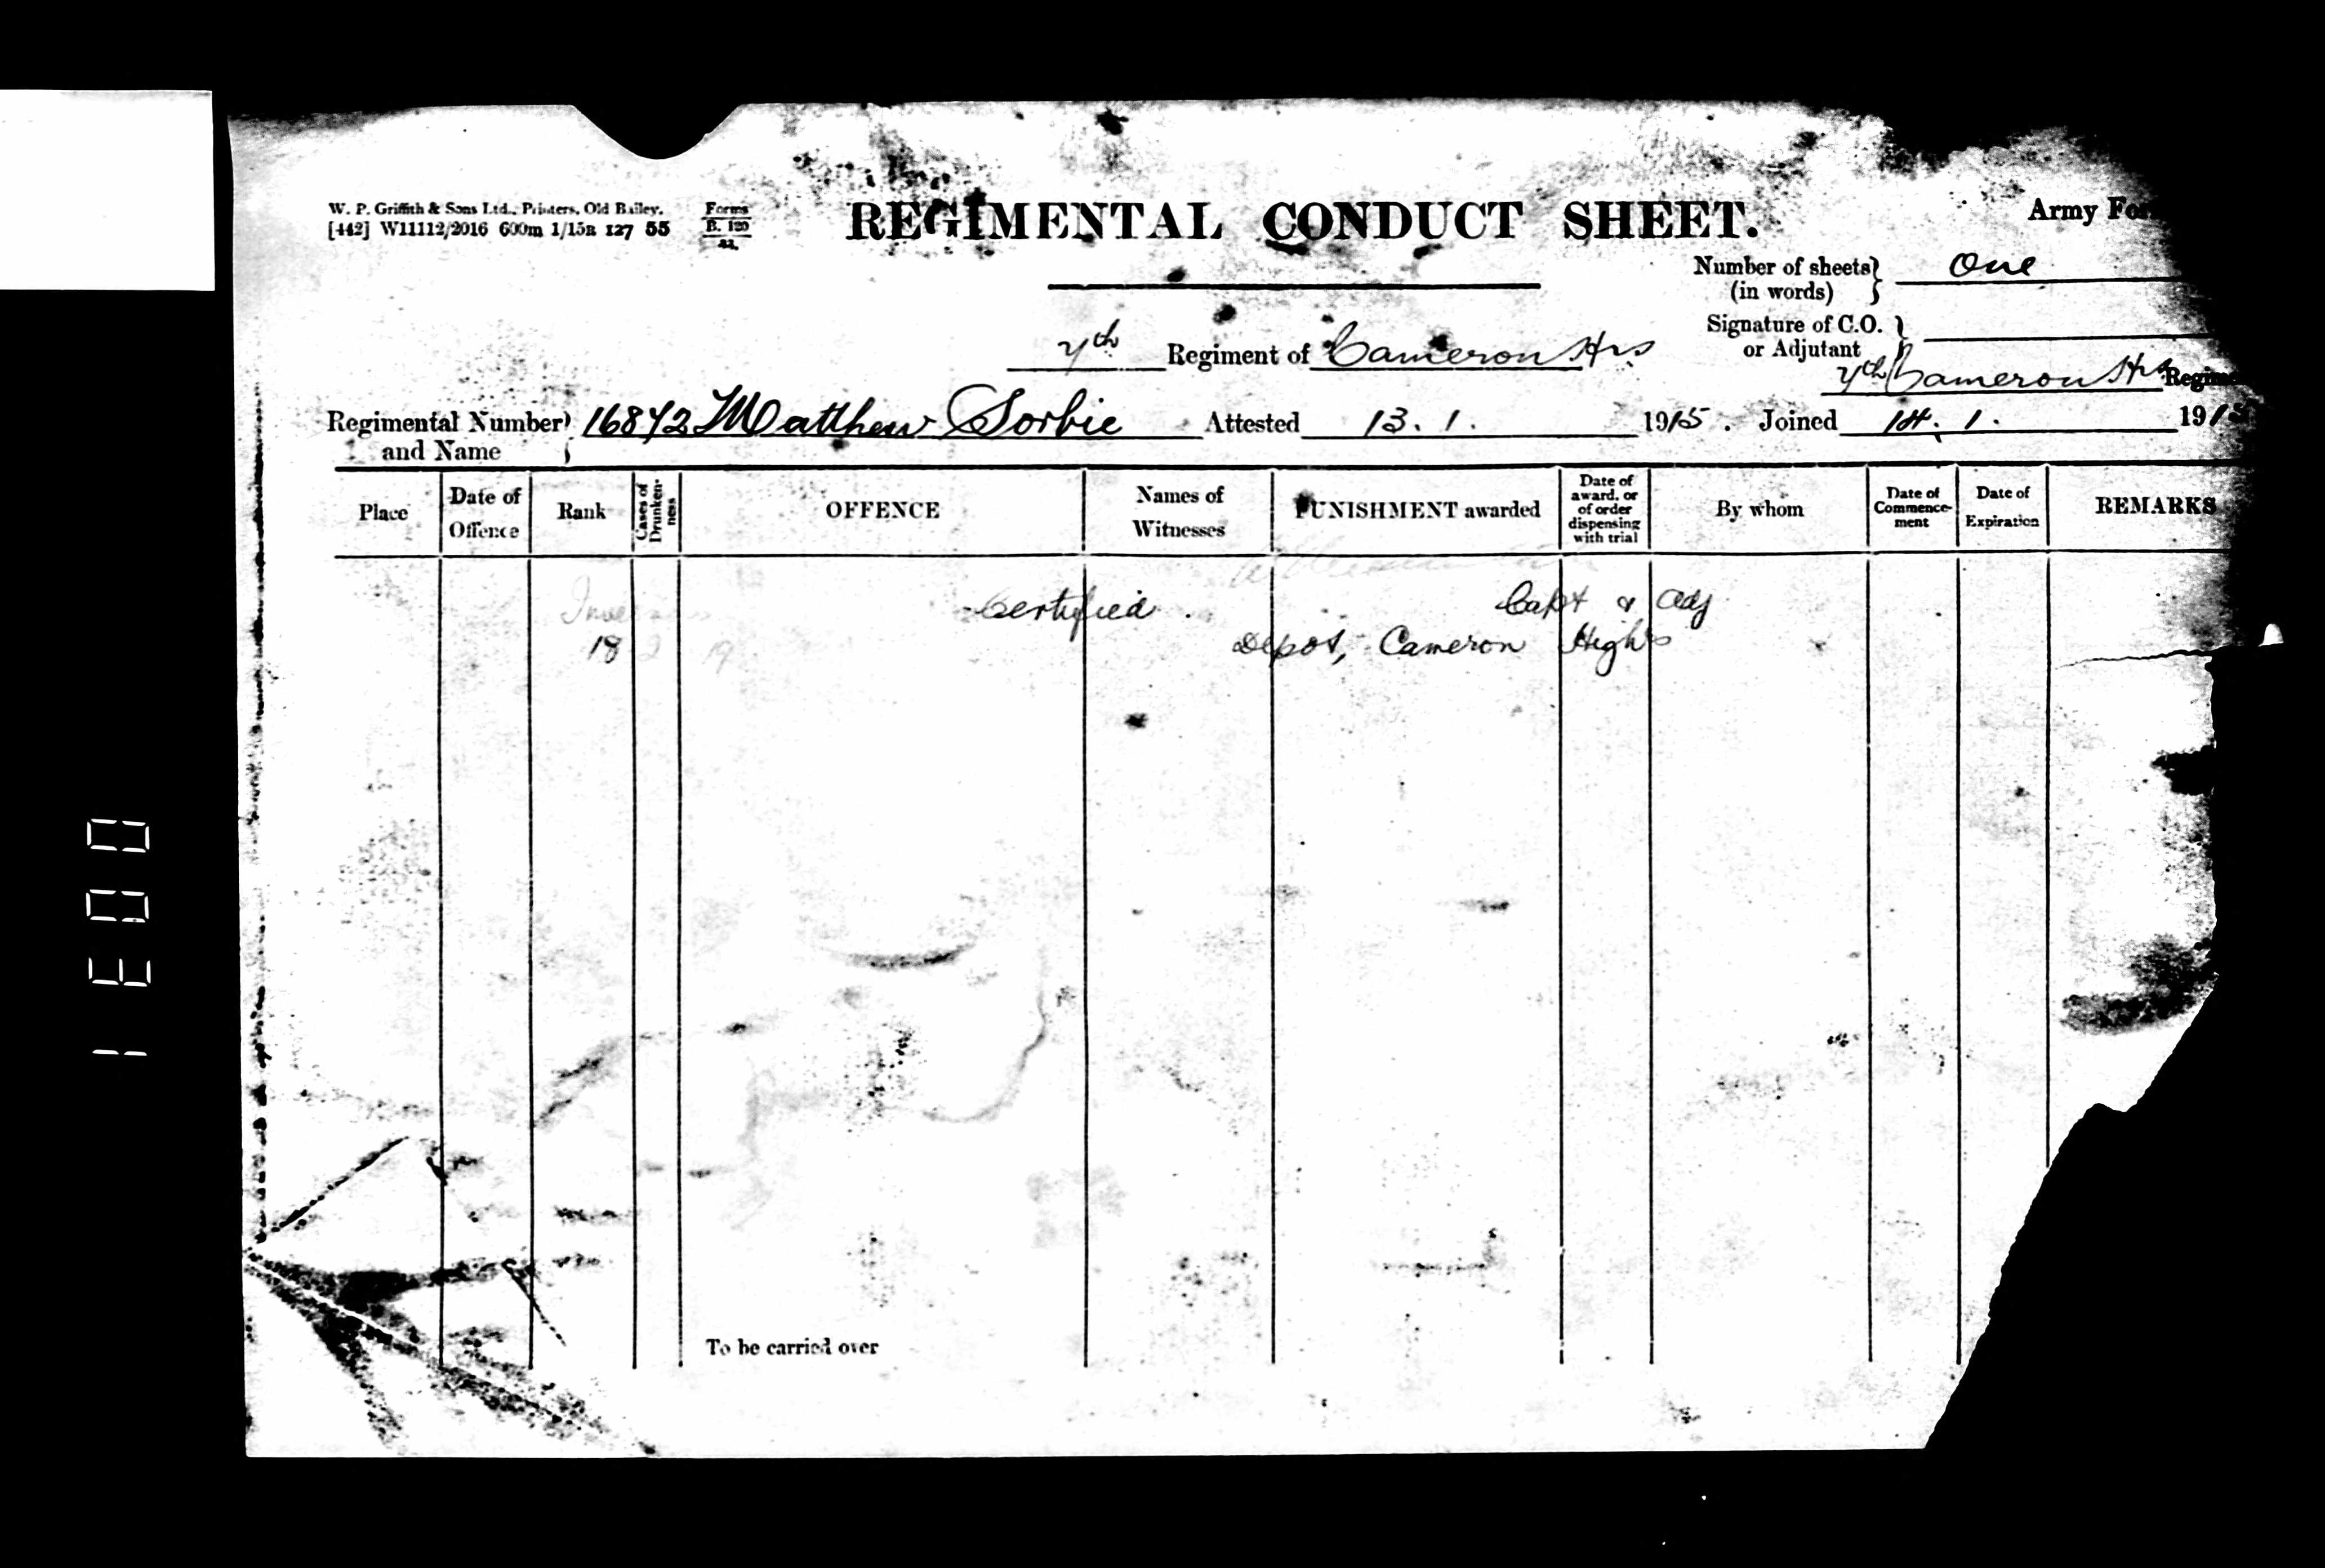 W. P. Griffith & Sons Ltd., Printers, Old Bailey.
[442] W11112/2016 600m 1/15B 127 55
Forms
B. 120
REGIMENTAL CONDUCT SHEET.
Army
Number of sheets (in words) } One
Signature of C.O. or Adjutant }
7th Regiment of Cameron Hrs
7th Cameron Hrs
Regimental Number and Name } 16842 Matthew Sorbie Attested 13. 1. 1915. Joined 14. 1. 1915
Place
Date of Offence
Rank
Cases of Drunkenness
OFFENCE
Names of Witnesses
PUNISHMENT awarded
Date of award, or of order dispensing with trial
By whom
Date of Commencement
Date of Expiration
REMARKS
Certified. Capt & Adj
18 2 19 Depot, Cameron Highrs
To be carried over
1 E 0 0